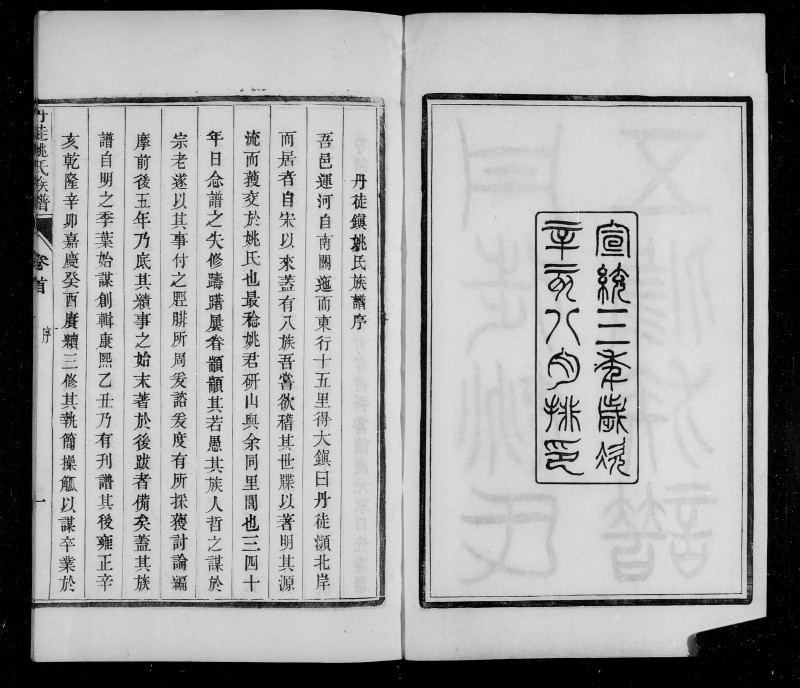 宣統三年歲次
辛亥八月排印
丹徒鎮姚氏族譜序
吾邑運河自南關迤而東行十五里得大鎮曰丹徒瀕北岸
而居者自宋以來蓋有八族吾嘗欲稽其世牒以著明其源
流而獲交於姚氏也最稔姚君研山與余同里閈也三四十
年日念譜之失修躊躇屢眷顓顓其若愚其族人哲之謀於
宗老遂以其事付之脛腓所周爰諮爰度有所採獲討論編
摩前後五年乃底其績事之始末著於後跋者備矣蓋其族
譜自明之季葉始謀創輯康熙乙丑乃有刊譜其後雍正辛
亥乾隆辛卯嘉慶癸酉賡續三修其執簡操觚以謀卒業於
丹徒姚氏族譜
卷首
序
一